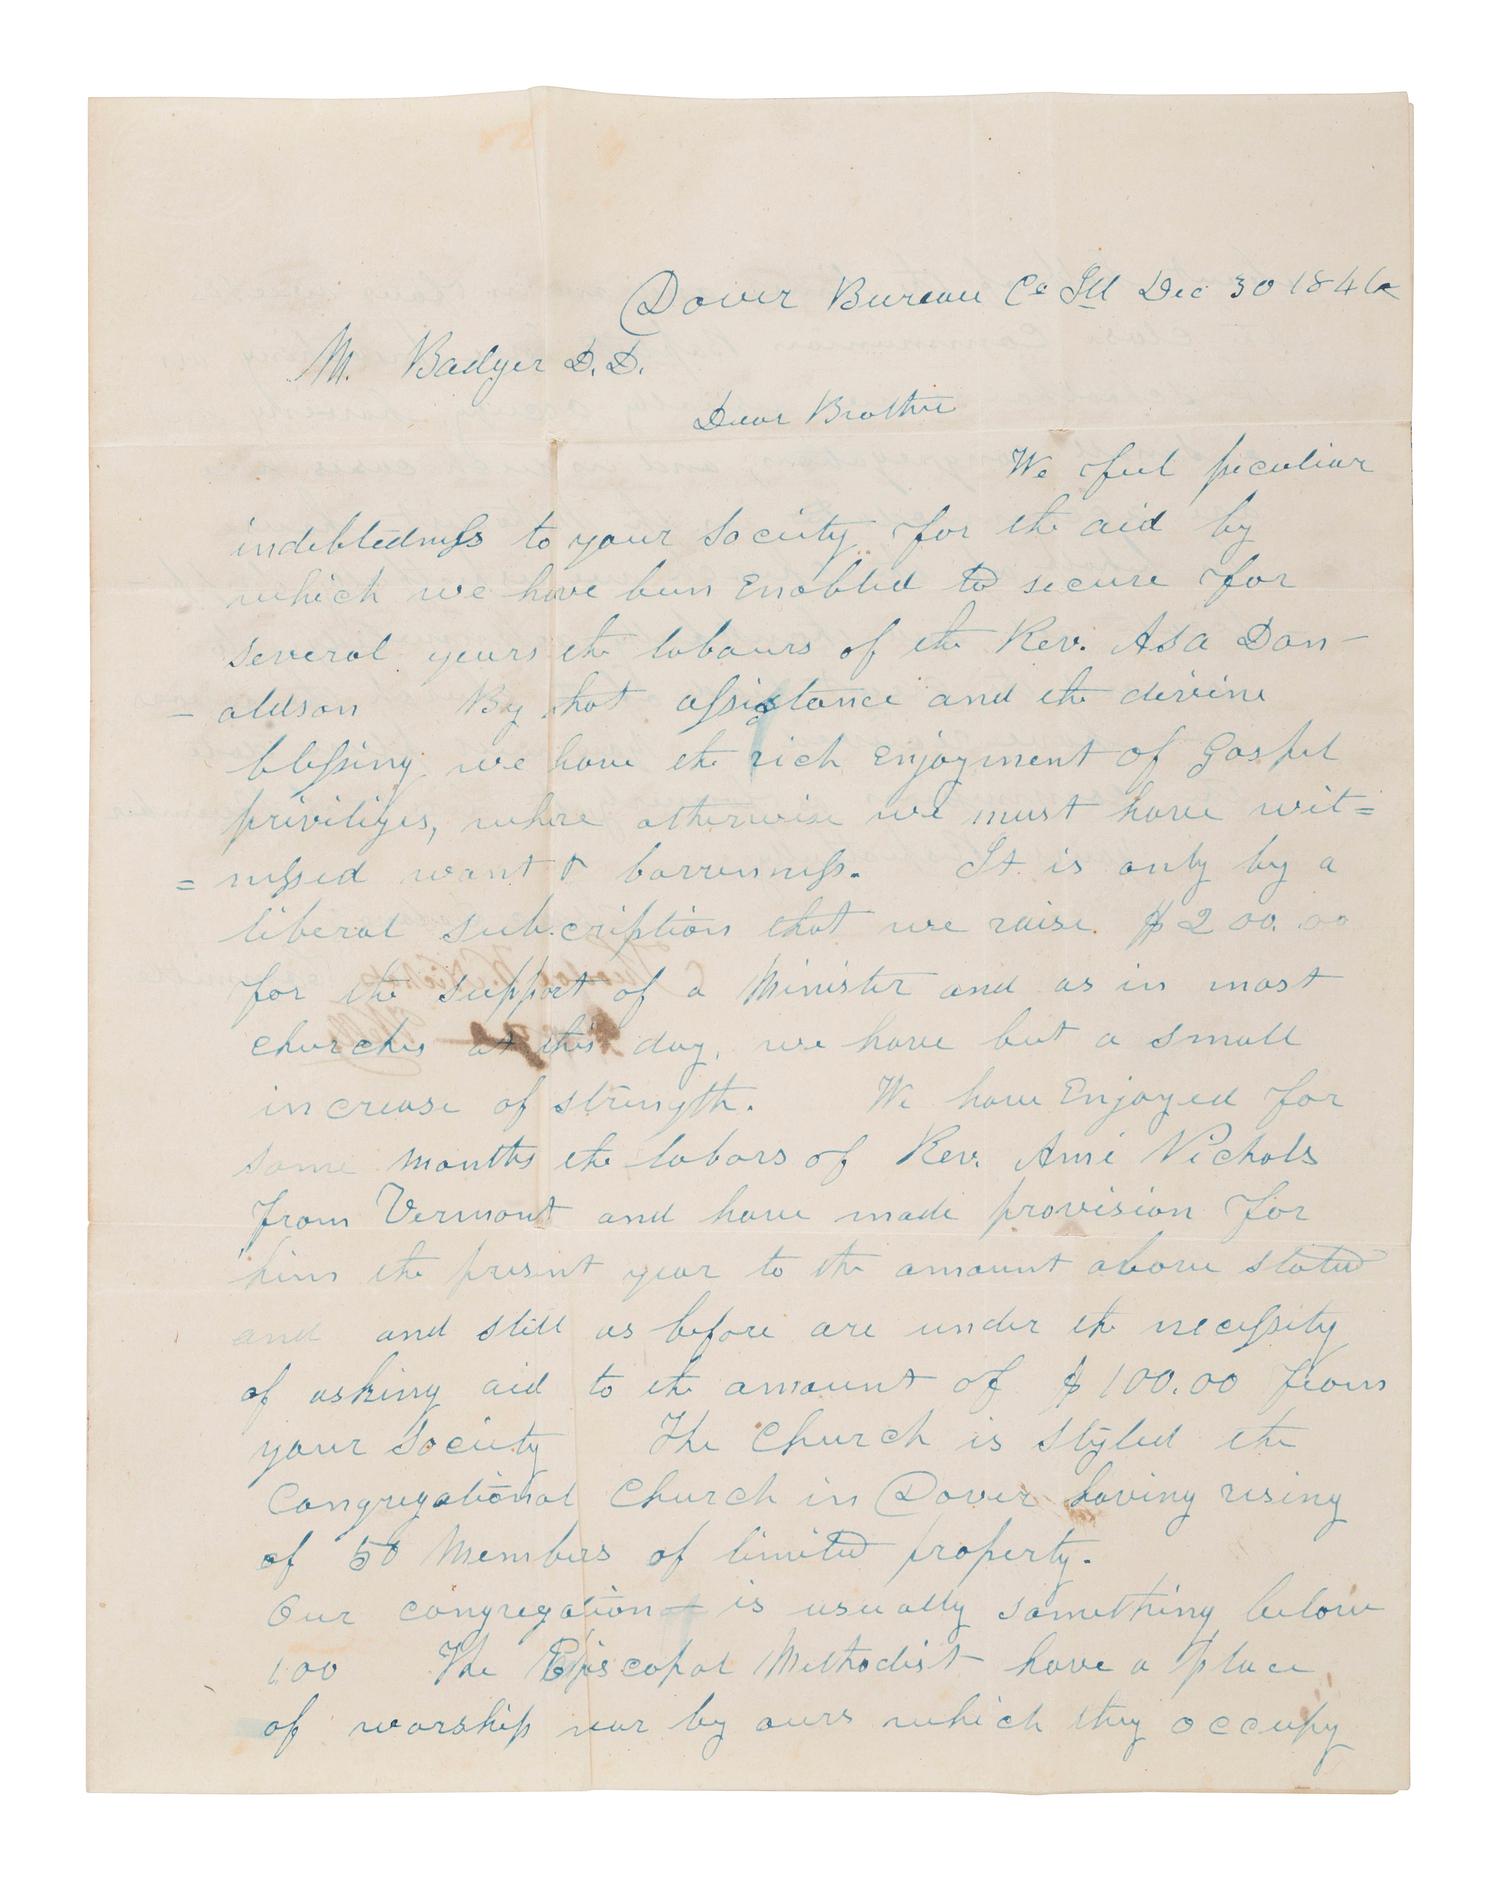 Dover Bureau Co Ill Dec 30 1846
M. Badger D.D.
Dear Brother
We feel peculiar
indebtedness to your Society for the aid by
which we have been Enabled to secure for
several years the labours of the Rev. Asa Don-
- aldson By that assistance and the divine
blessing we have the rich Enjoyment of Gospel
priviliges, where otherwise we must have wit=
= nessed want & barrenness. It is only by a
liberal subscription that we raise $200.00
for the support of a Minister and as in most
churches at this day, we have but a small
increase of strength. We have Enjoyed for
some months the labors of Rev. Ami Nichols
from Vermont and have made provision for
him the present year to the amount above stated
and and still as before are under the necessity
of asking aid to the amount of $100.00 from
your Society The Church is styled the
Congregational Church in Dover having rising
of 50 Members of limited property.
Our congregation is usually something below
100 The Episcopal Methodist have a place
of worship near by ours which they occupy